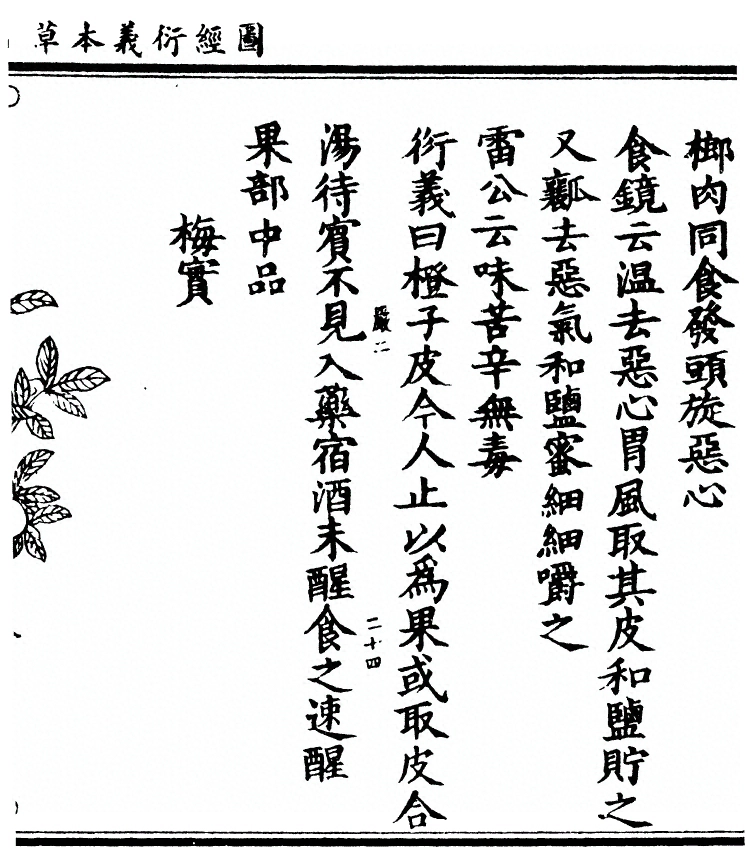 圖經衍義本草
榔肉同食發頭旋惡心
食鏡云温去惡心胃風取其皮和鹽貯之
又瓤去惡氣和鹽蜜細細嚼之
雷公云味苦辛無毒
衍義曰橙子皮今人止以爲果或取皮合
巖二
二十四
湯待賓不見入藥宿酒未醒食之速醒
果部中品
梅實